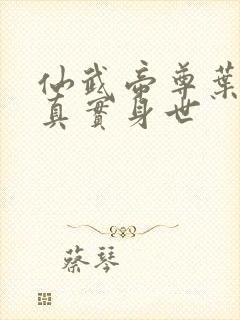 仙武帝尊葉
真實身世
蔡琴